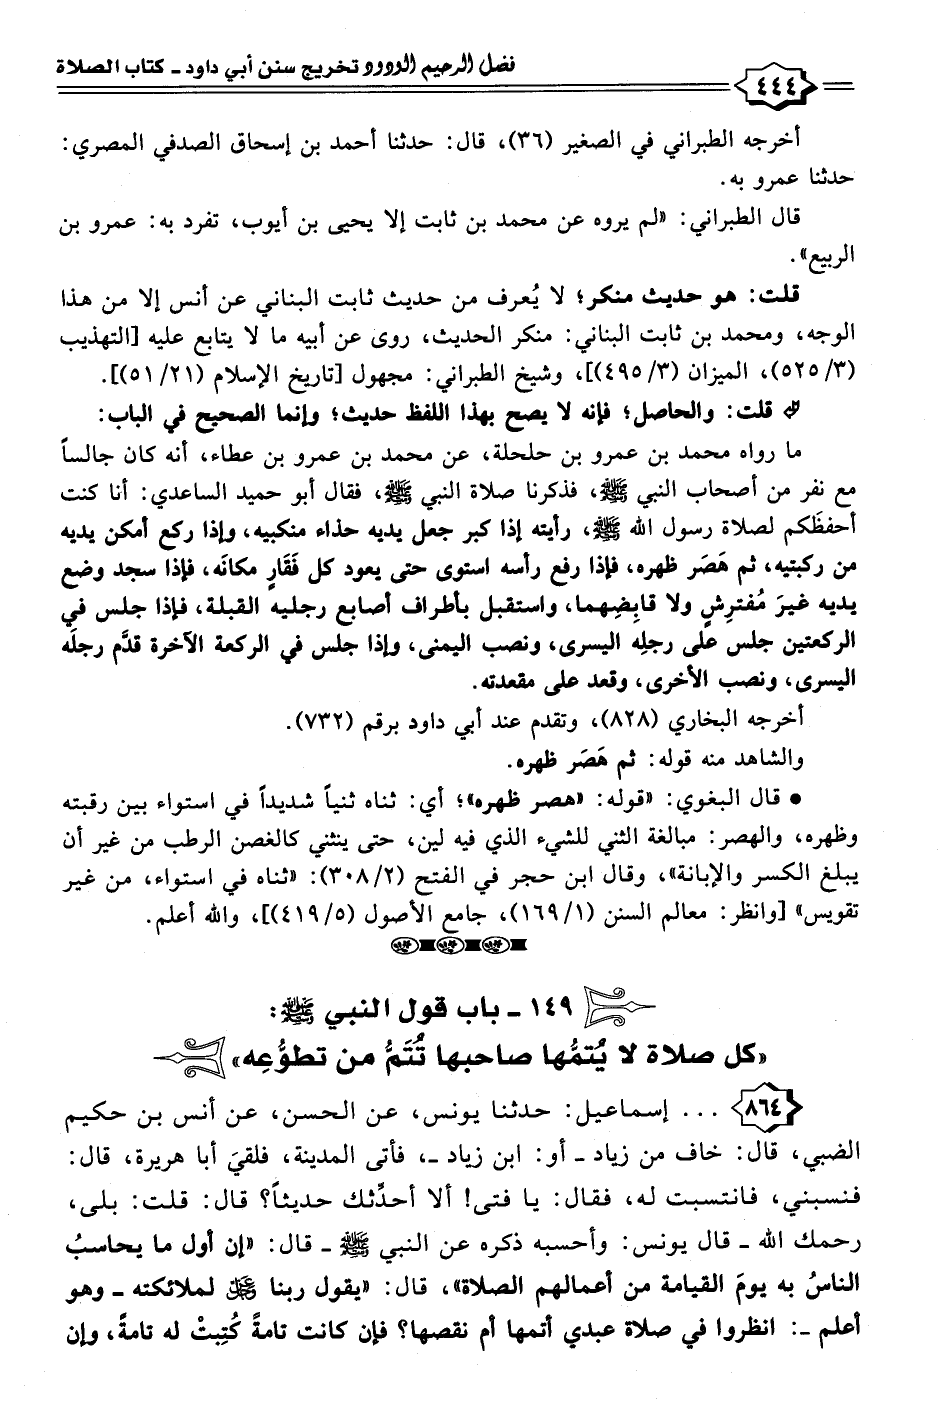 فضل الرحيم الودود تخريج سنن أبي داود ـ كتاب الصلاة
٤٤٤
أخرجه الطبراني في الصغير (٣٦)، قال: حدثنا أحمد بن إسحاق الصدفي المصري:
حدثنا عمرو به.
قال الطبراني: «لم يروه عن محمد بن ثابت إلا يحيى بن أيوب، تفرد به: عمرو بن
الربيع».
قلت: هو حديث منكر؛ لا يُعرف من حديث ثابت البناني عن أنس إلا من هذا
الوجه، ومحمد بن ثابت البناني: منكر الحديث، روى عن أبيه ما لا يتابع عليه [التهذيب
(٥٢٥/٣)، الميزان (٤٩٥/٣)]، وشيخ الطبراني: مجهول [تاريخ الإسلام (٥١/٢١)].
قلت: والحاصل؛ فإنه لا يصح بهذا اللفظ حديث؛ وإنما الصحيح في الباب:
ما رواه محمد بن عمرو بن حلحلة، عن محمد بن عمرو بن عطاء، أنه كان جالساً
مع نفر من أصحاب النبي ﷺ، فذكرنا صلاة النبي ﷺ، فقال أبو حميد الساعدي: أنا كنت
أحفظَكم لصلاة رسول الله ﷺ، رأيته إذا كبر جعل يديه حذاء منكبيه، وإذا ركع أمكن يديه
من ركبتيه، ثم هَصَر ظهره، فإذا رفع رأسه استوى حتى يعود كل فَقَارٍ مكانَه، فإذا سجد وضع
يديه غيرَ مُفترِشٍ ولا قابِضِهما، واستقبل بأطراف أصابع رجليه القبلة، فإذا جلس في
الركعتين جلس على رجلِه اليسرى، ونصب اليمنى، وإذا جلس في الركعة الآخرة قدَّم رجلَه
اليسرى، ونصب الأخرى، وقعد على مقعدته.
أخرجه البخاري (٨٢٨)، وتقدم عند أبي داود برقم (٧٣٢).
والشاهد منه قوله: ثم هَصَر ظهره.
• قال البغوي: «قوله: «هصر ظهره»؛ أي: ثناه ثنياً شديداً في استواء بين رقبته
وظهره، والهصر: مبالغة الثني للشيء الذي فيه لين، حتى ينثني كالغصن الرطب من غير أن
يبلغ الكسر والإبانة»، وقال ابن حجر في الفتح (٣٠٨/٢): «ثناه في استواء، من غير
تقويس» [وانظر: معالم السنن (١٦٩/١)، جامع الأصول (٤١٩/٥)]، والله أعلم.
١٤٩ ـ باب قول النبي ﷺ:
«كل صلاة لا يُتمُّها صاحبها تُتَمُّ من تطوُّعِه»
٨٦٤ ... إسماعيل: حدثنا يونس، عن الحسن، عن أنس بن حكيم
الضبي، قال: خاف من زياد ـ أو: ابن زياد ـ، فأتى المدينة، فلقيَ أبا هريرة، قال:
فنسبني، فانتسبت له، فقال: يا فتى! ألا أحدِّثك حديثاً؟ قال: قلت: بلى،
رحمك الله ـ قال يونس: وأحسبه ذكره عن النبي ﷺ ـ قال: «إن أول ما يحاسبُ
الناسُ به يومَ القيامة من أعمالهم الصلاة»، قال: «يقول ربنا ﷻ لملائكته ـ وهو
أعلم ـ: انظروا في صلاة عبدي أتمها أم نقصها؟ فإن كانت تامةً كُتِبتْ له تامةً، وإن